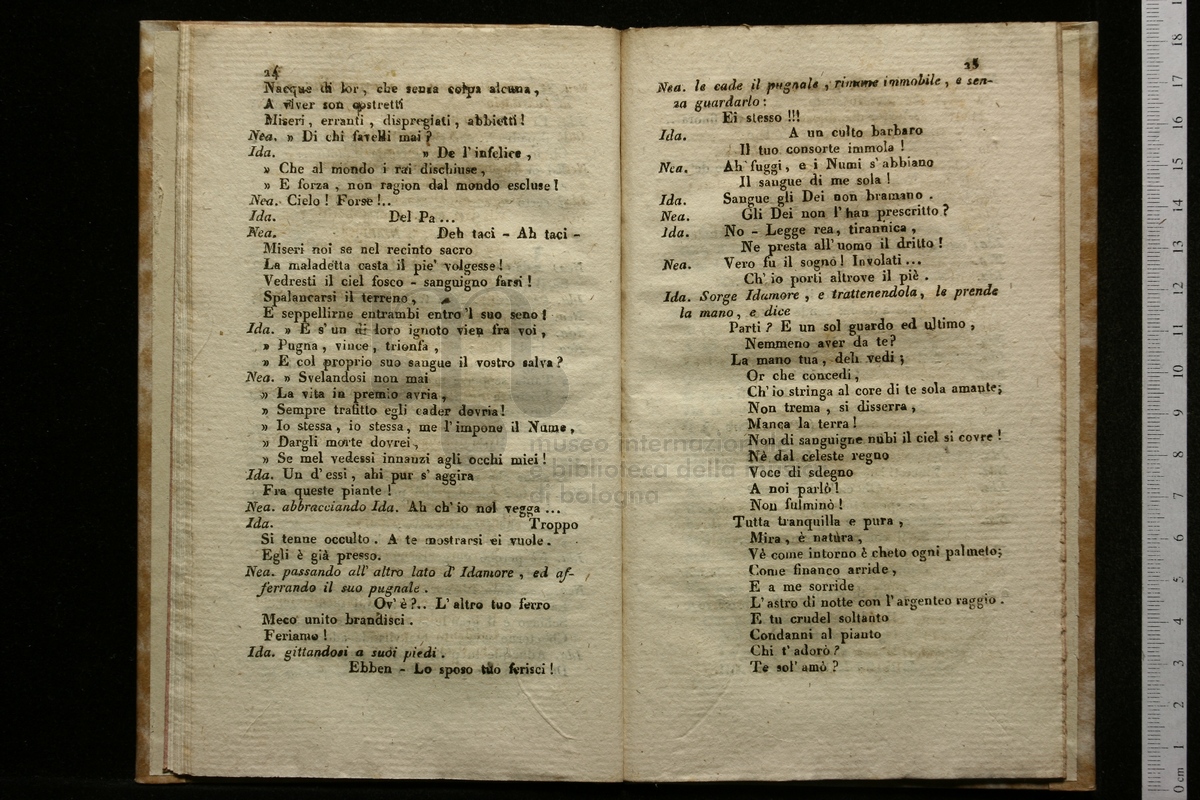 24
Nacque di lor, che senza colpa alcuna,
A viver son costretti
Miseri, erranti, dispregiati, abbietti!
Nea. » Di chi favelli mai?
Ida. » De l'infelice,
» Che al mondo i rai dischiuse,
» E forza, non ragion dal mondo escluse!
Nea. Cielo! Forse!..
Ida. Del Pa...
Nea. Deh taci - Ah taci -
Miseri noi se nel recinto sacro
La maladetta casta il pie' volgesse!
Vedresti il ciel fosco - sanguigno farsi!
Spalancarsi il terreno,
E seppellirne entrambi entro 'l suo seno!
Ida. » E s'un di loro ignoto vien fra voi,
» Pugna, vince, trionfa,
» E col proprio suo sangue il vostro salva?
Nea. » Svelandosi non mai
» La vita in premio avria,
» Sempre trafitto egli cader dovria!
» Io stessa, io stessa, me l'impone il Nume,
» Dargli morte dovrei,
» Se mel vedessi innanzi agli occhi miei!
Ida. Un d'essi, ahi pur s'aggira
Fra queste piante!
Nea. abbracciando Ida. Ah ch'io nol vegga...
Ida. Troppo
Si tenne occulto. A te mostrarsi ei vuole.
Egli è già presso.
Nea. passando all' altro lato d' Idamore, ed af-
ferrando il suo pugnale.
Ov'è?.. L'altro tuo ferro
Meco unito brandisci.
Feriamo!
Ida. gittandosi a suoi piedi.
Ebben - Lo sposo tuo ferisci!
25
Nea. le cade il pugnale, rimane immobile, e sen-
za guardarlo:
Ei stesso!!!
Ida. A un culto barbaro
Il tuo consorte immola!
Nea. Ah fuggi, e i Numi s'abbiano
Il sangue di me sola!
Ida. Sangue gli Dei non bramano.
Nea. Gli Dei non l'han prescritto?
Ida. No - Legge rea, tirannica,
Ne presta all'uomo il dritto!
Nea. Vero fu il sogno! Involati...
Ch'io porti altrove il piè.
Ida. Sorge Idamore, e trattenendola, le prende
la mano, e dice
Parti? E un sol guardo ed ultimo,
Nemmeno aver da te?
La mano tua, deh vedi;
Or che concedi,
Ch'io stringa al core di te sola amante;
Non trema, si disserra,
Manca la terra!
Non di sanguigne nubi il ciel si covre!
Nè dal celeste regno
Voce di sdegno
A noi parlò!
Non fulminò!
Tutta tranquilla e pura,
Mira, è natura,
Vè come intorno è cheto ogni palmeto;
Come financo arride,
E a me sorride
L'astro di notte con l'argenteo raggio.
E tu crudel soltanto
Condanni al pianto
Chi t'adorò?
Te sol' amò?
museo internazion
biblioteca della
di bologna
0 cm 1 2 3 4 5 6 7 8 9 10 11 12 13 14 15 16 17 18